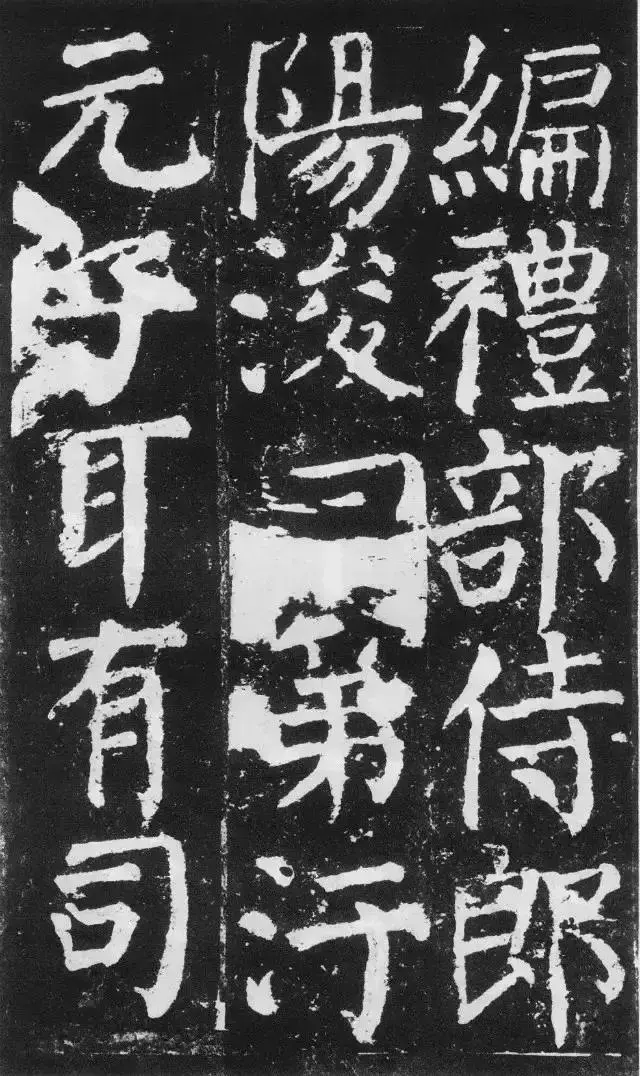 編禮部侍郎
陽浚曰第汙
元子耳有司